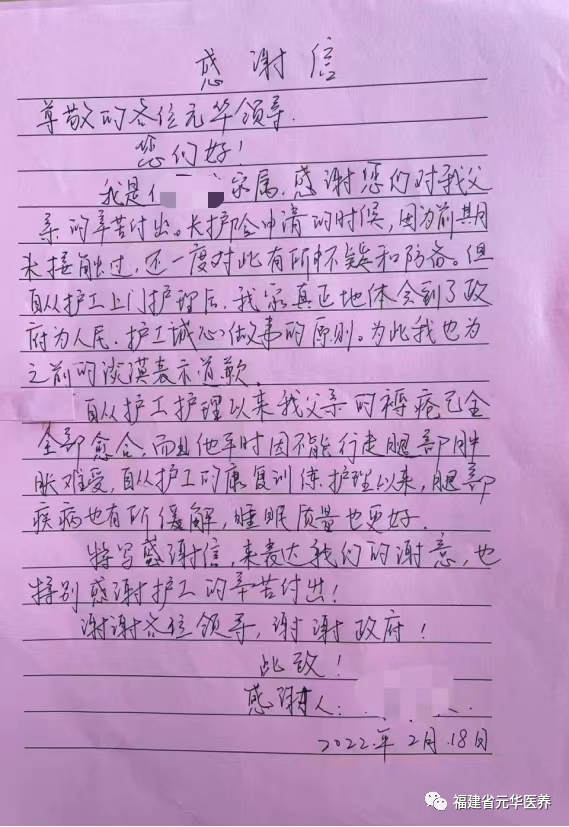 感谢信
尊敬的各位元华领导.
您们好!
我是 家属,感谢您们对我父
亲的辛苦付出。长护险申请的时候,因为前期
未接触过,还一度对此有所怀疑和防备。但
自从护工上门护理后,我家真正地体会到了政
府为人民、护工诚心做事的原则。为此我也为
之前的淡漠表示道歉。
自从护工护理以来我父亲的褥疮已全
全部愈合,而且他平时因不能行走腿部肿
胀难受,自从护工的康复训练护理以来,腿部
疾病也有所缓解,睡眠质量也更好.
特写感谢信,来表达我们的谢意,也
特别感谢护工的辛苦付出!
谢谢各位领导,谢谢政府!
此致!
感谢人:
2022年2月18日
福建省元华医养